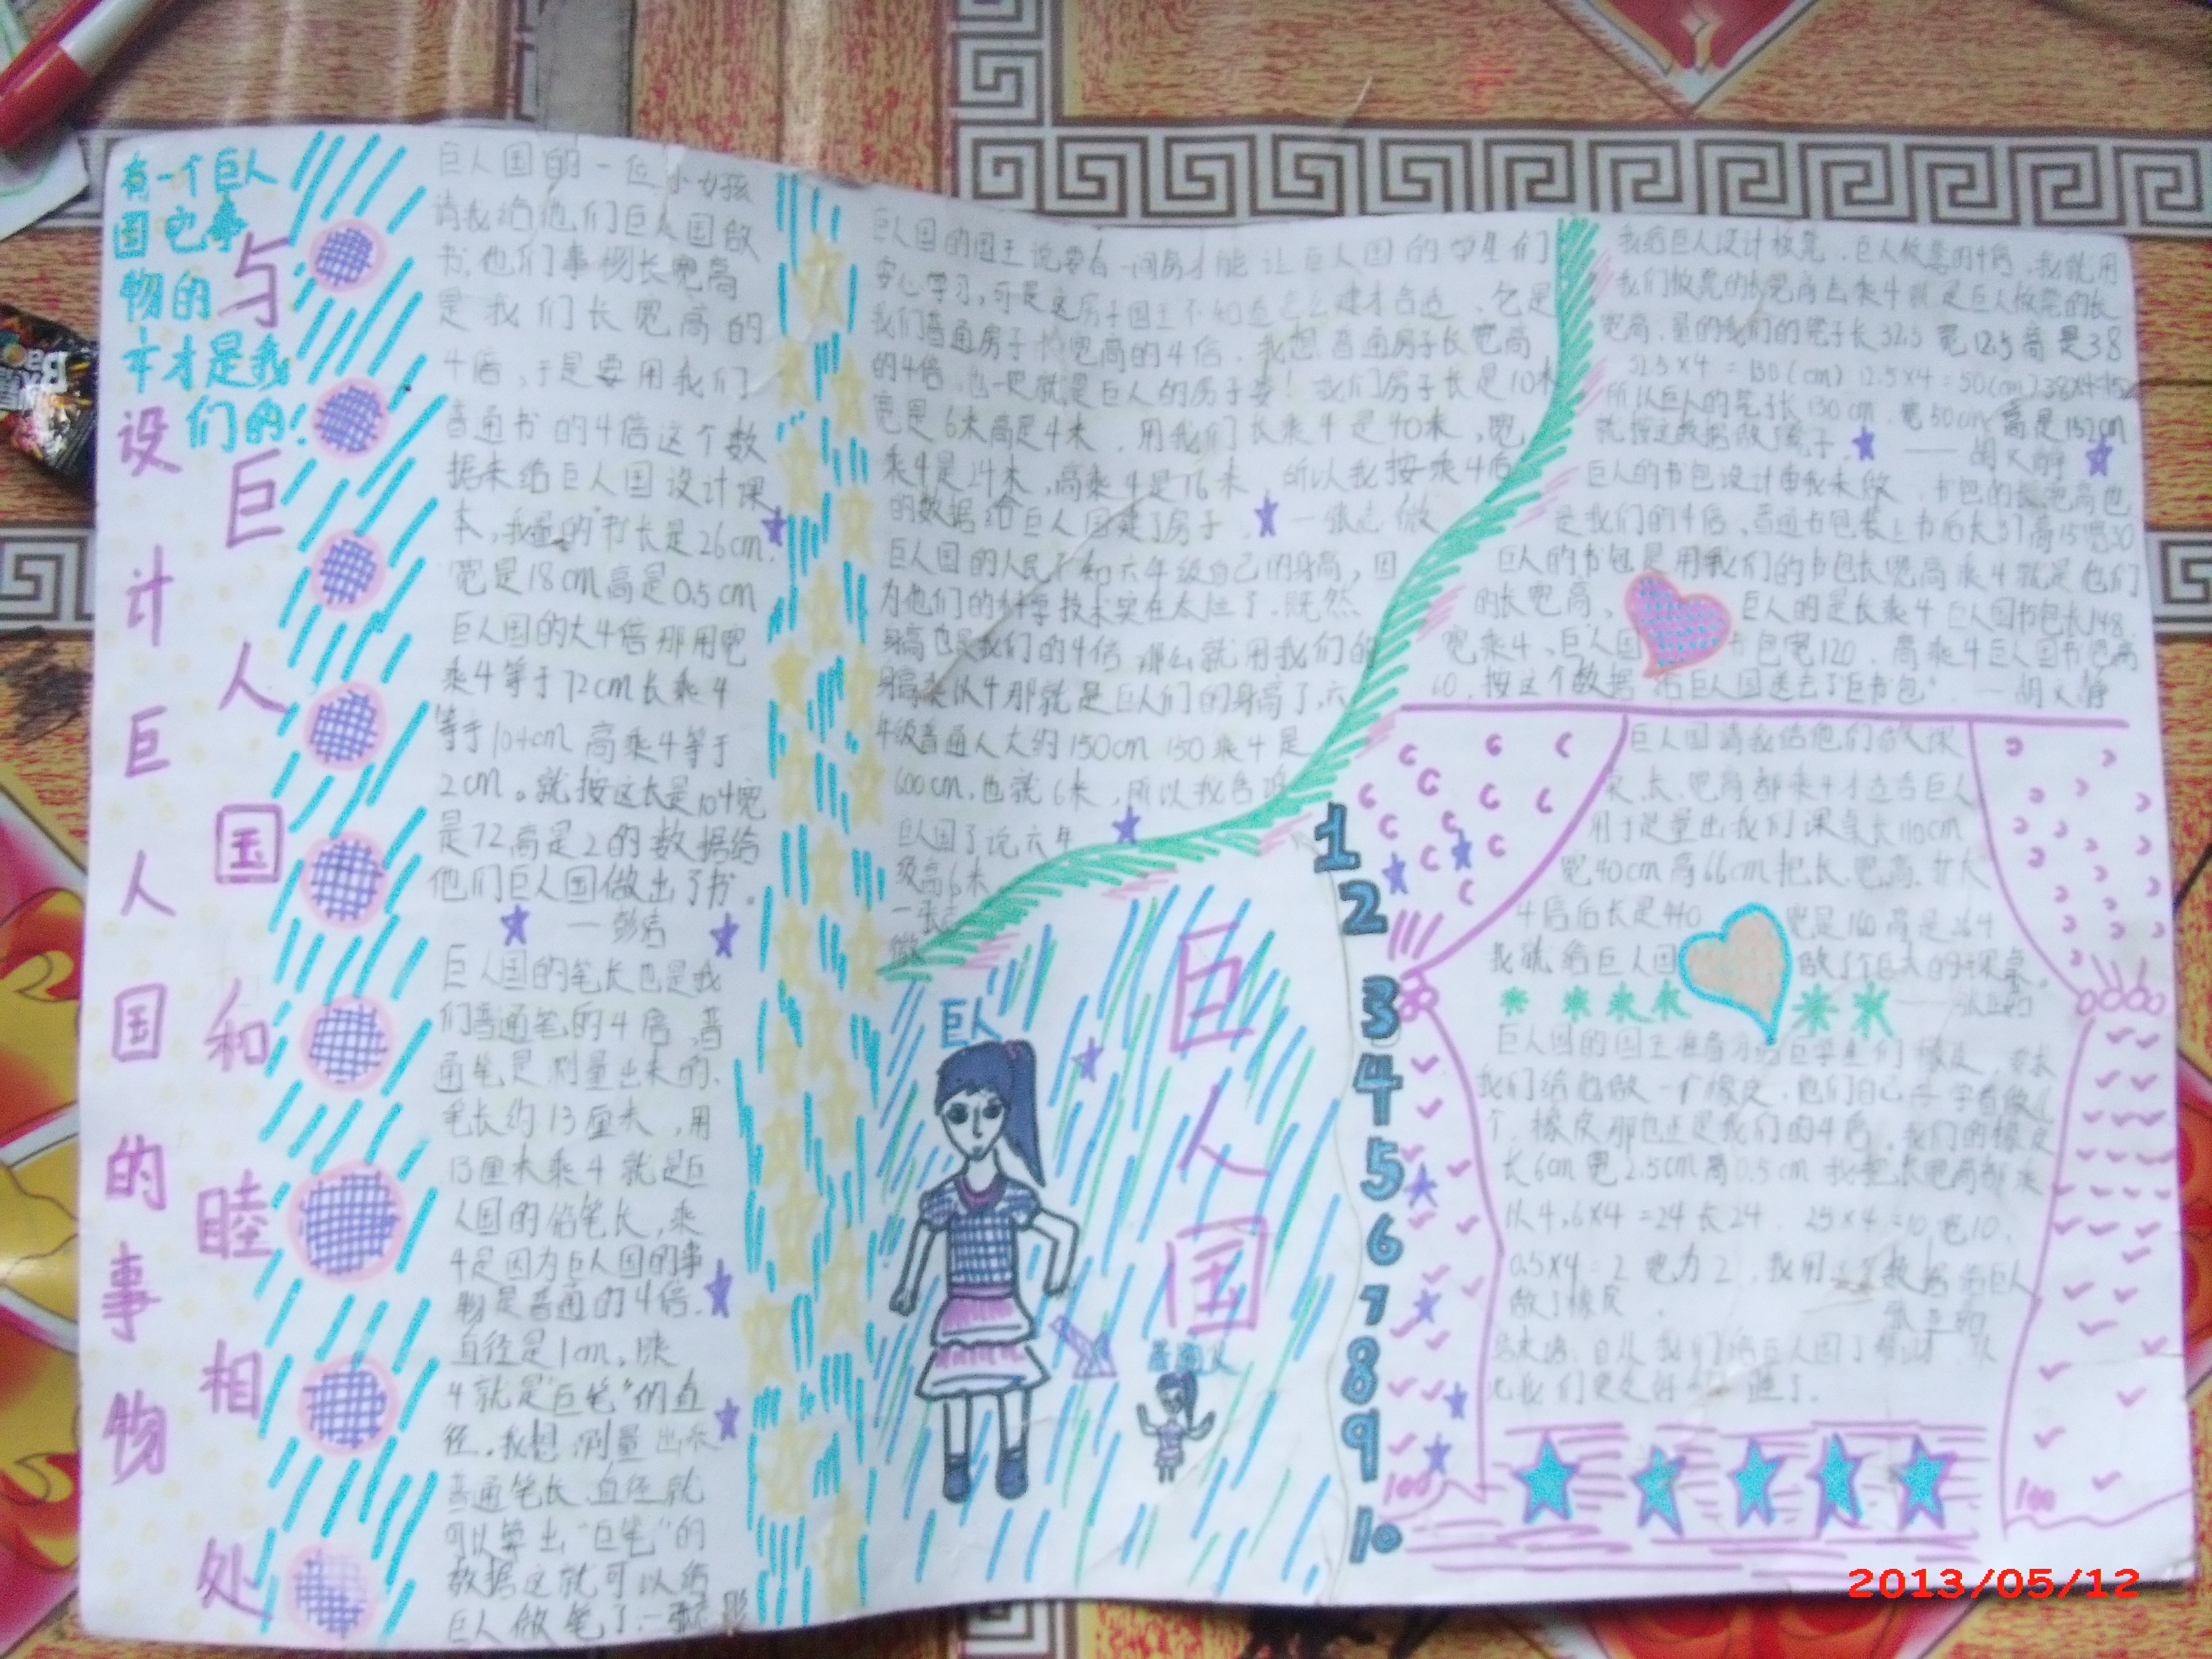 有一个巨人
国它事
物的
才是我
们的!
与巨人国和睦相处
设计巨人国的事物
巨人国的一位小女孩
请我给他们巨人国做
书,他们事物长宽高
是我们长宽高的
4倍,于是要用我们
普通书的4倍这个数
据来给巨人国设计课
本,我量的书长是26cm.
宽是18cm高是0.5cm
巨人国的大4倍那用宽
乘4等于72cm长乘4
等于104cm高乘4等于
2cm。就按这长是104宽
是72高是2的数据给
他们巨人国做出了书。
巨人国的笔长也是我
们普通笔的4倍,普
通笔是测量出来的.
笔长约13厘米,用
13厘米乘4就是巨
人国的铅笔长,乘
4是因为巨人国的事
物是普通的4倍.
直径是1cm。
4就是"巨笔"的直
径.我想测量出来
普通笔长.直径就
可以算出"巨笔"的
数据这就可以给
巨人做笔了.一张
巨人国的国王说要有一间房才能让巨人国的学生们
安心学习,可是这房子国王不知道怎么建才合适.它是
我们普通房子长宽高的4倍.我想普通房子长宽高
的4倍,也一定就是巨人的房子!我们房子长是10米
宽是6米高是4米,用我们长乘4是40米,宽
乘4是24米,高乘4是16米,所以我按乘4后
的数据给巨人国建了房子,一张
巨人国的人民不知六年级自己的身高,因
为他们的科学技术实在太烂了.既然
身高也是我们的4倍那么就用我们的
身高乘以4那就是巨人们的身高了,六
年级普通人大约150cm 150乘4是
600cm,也就6米,所以我告诉
巨人国了说六年
级高6米
一张
巨人
巨人国
普通人
1
2
3
4
5
6
7
8
9
10
我给巨人设计板凳.巨人板凳的4倍,我就用
我们板凳的长宽高去乘4就是巨人板凳的长
宽高.量的我们的凳子长32.5宽12.5高是38
32.5×4=130(cm) 12.5×4=50(cm) 38×4=152
所以巨人的凳子长130cm.宽50cm.高是152cm
就按这数据做了凳子. ——胡
巨人的书包设计由我来做.书包的长宽高也
是我们的4倍,普通书包装上书后长37高15宽30
巨人的书包是用我们的书包长宽高乘4就是他们
的长宽高,巨人的是长乘4巨人国书包长148
宽乘4,巨人国书包宽120.高乘4巨人国书包高
60,按这个数据给巨人国送去了"巨书包".—胡
巨人国请我给他们做课
桌.长.宽高都乘4才适合巨人
用于是量出我们课桌长110cm
宽40cm高66cm把长.宽高.扩大
4倍后长是440宽是160高是264
我就给巨人国做了个巨大的课桌。
巨人国的国王准备分给巨学生们橡皮,要求
我们给他做一个橡皮.他们自己学着做几
个,橡皮那也还是我们的4倍.我们的橡皮
长6cm宽2.5cm高0.5cm我把长宽高都乘
以4,6×4=24长24. 2.5×4=10宽10.
0.5×4=2宽为2,我用这个数据给巨人
做了橡皮.
100
100
2013/05/12